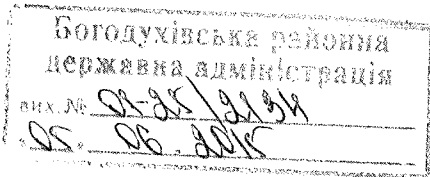 Богодухівська районна
державна адміністрація
вих. № 01-25/2134
"05" 06. 2015